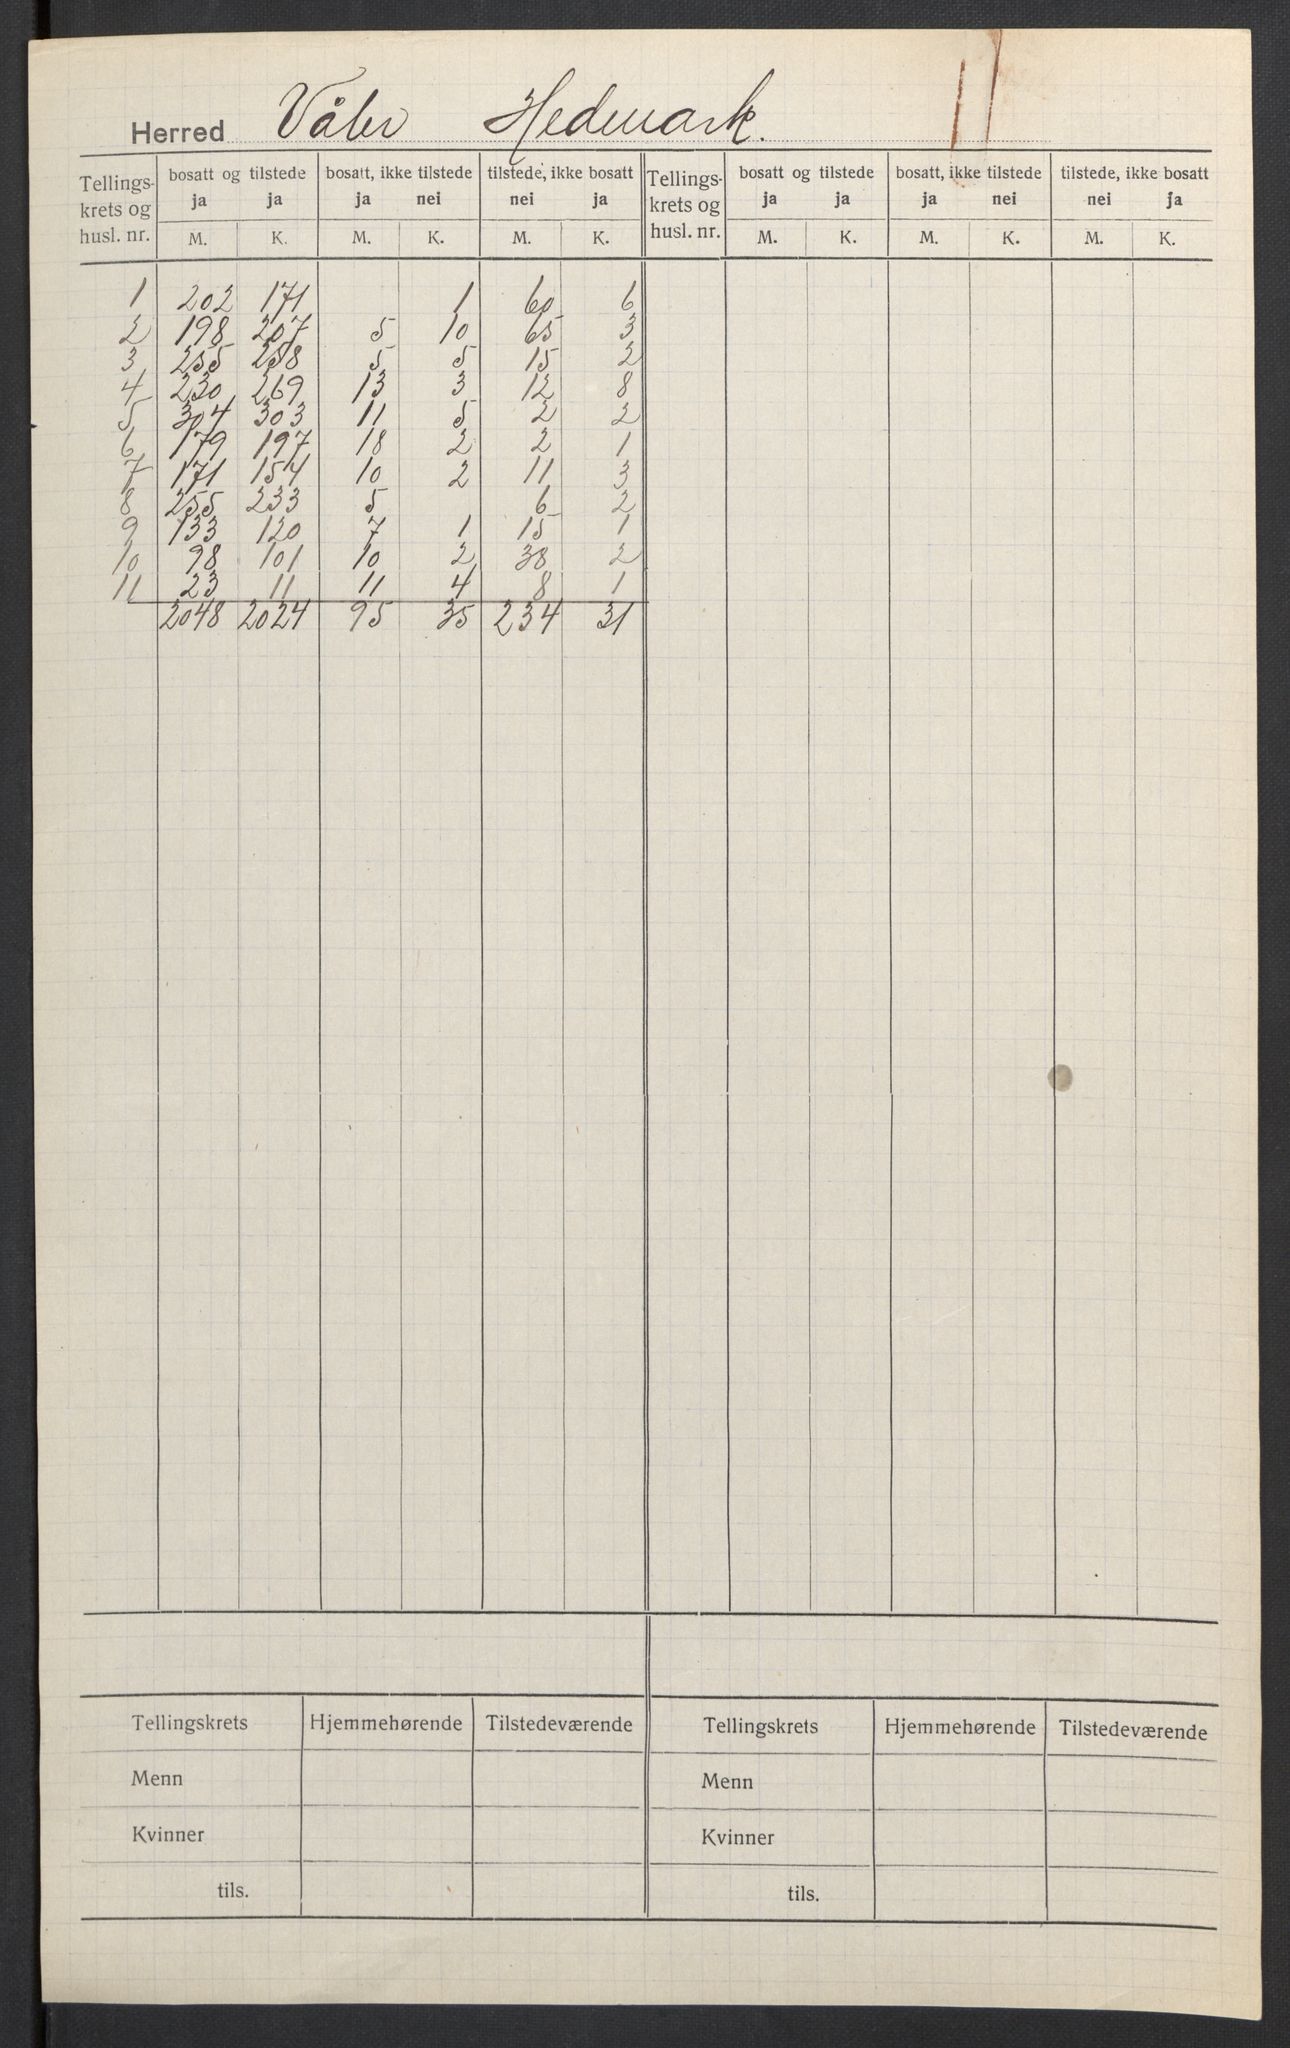 Herred Våler Hedmark.
Tellings- bosatt og tilstede bosatt, ikke tilstede tilstede, ikke bosatt Tellings- bosatt og tilstede bosatt, ikke tilstede tilstede, ikke bosatt
krets og ja ja ja nei nei ja krets og ja ja ja nei nei ja
husl. nr. M. K. M. K. M. K. husl. nr. M. K. M. K. M. K.
1 202 171 1 60 6
2 198 207 5 10 65 3
3 255 258 5 5 15 2
4 230 269 13 3 12 8
5 304 303 11 5 2 2
6 179 197 18 2 2 1
7 171 154 10 2 11 3
8 255 233 5 6 2
9 133 120 7 1 15 1
10 98 101 10 2 38 2
11 23 11 11 4 8 1
2048 2024 95 35 234 31
Tellingskrets Hjemmehørende Tilstedeværende Tellingskrets Hjemmehørende Tilstedeværende
Menn Menn
Kvinner Kvinner
tils. tils.